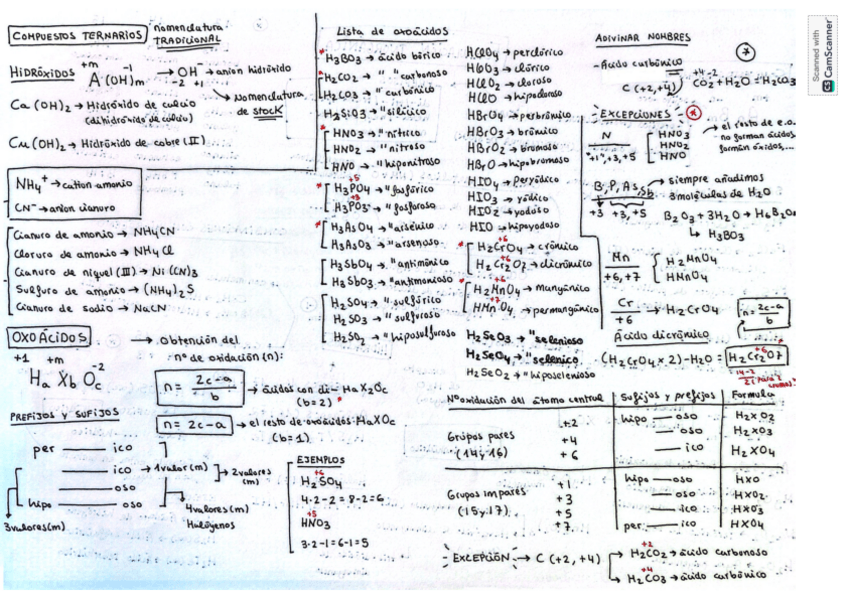 COMPUESTOS TERNARIOS nomenclatura TRADICIONAL
HIDRÓXIDOS +m -1 A(OH)m → OH⁻ → anion hidróxido
-2 +1
→ Nomenclatura de STOCK
Ca(OH)2 → Hidróxido de calcio
(dihidróxido de calcio)
Cu(OH)2 → Hidróxido de cobre (II)
NH4⁺ → cation amonio
CN⁻ → anion cianuro
Cianuro de amonio → NH4CN
Cloruro de amonio → NH4Cl
Cianuro de niquel (III) → Ni(CN)3
Sulfuro de amonio → (NH4)2S
Cianuro de sodio → NaCN
OXOÁCIDOS → obtención del
nº de oxidación (n):
+1 +m -2
Ha Xb Oc
n = 2c-a / b → ácidos con di- HaX2Oc
(b=2) *
n = 2c-a → el resto de oxoácidos HaXOc
(b=1)
PREFIJOS Y SUFIJOS
per ___ ico
___ ico → 1valor(m)
___ oso
hipo ___ oso
2valores(m)
3valores(m)
4valores(m)
Halógenos
EJEMPLOS
+6
H2SO4
4·2-2=8-2=6
+5
HNO3
3·2-1=6-1=5
Lista de oxoácidos
* H3BO3 → ácido bórico
* H2CO2 → " carbonoso
H2CO3 → " carbónico
H2SiO3 → " silícico
* HNO3 → " nítrico
HNO2 → " nitroso
HNO → " hiponitroso
* +5 H3PO4 → " fosfórico
+3 H3PO3 → " fosforoso
* H3AsO4 → " arsénico
H3AsO3 → " arsenoso
H3SbO4 → " antimónico
H3SbO3 → " antimonioso
H2SO4 → " sulfúrico
H2SO3 → " sulfuroso
H2SO2 → " hiposulfuroso
HClO4 → perclórico
HClO3 → clórico
HClO2 → cloroso
HClO → hipocloroso
HBrO4 → perbrómico
HBrO3 → brómico
HBrO2 → bromoso
HBrO → hipobromoso
HIO4 → peryódico
HIO3 → yódico
HIO2 → yodoso
HIO → hipoyodoso
* +6 H2CrO4 → crómico
+6 H2Cr2O7 → dicrómico
* +6 H2MnO4 → mangánico
+7 HMnO4 → permangánico
H2SeO3 → " selenioso
H2SeO4 → " selenico
H2SeO2 → " hiposelenioso
ADIVINAR NOMBRES *
- Ácido carbónico
C (+2,+4) +4 -2 CO2+H2O → H2CO3
EXCEPCIONES *
N
+1, +3, +5
HNO3
HNO2
HNO
→ el resto de e.o. no forman ácidos, forman óxidos,...
B, P, As, Sb → siempre añadimos 3 moléculas de H2O
+3 +3,+5 B2O3 + 3H2O → H6B2O6
↳ H3BO3
Mn
+6, +7
H2MnO4
HMnO4
Cr
+6 → H2CrO4
n = 2c-a / b
Ácido dicrómico
(H2CrO4 × 2) - H2O = +6 H2Cr2O7 *
Nº oxidación del átomo central | Sufijos y prefijos | Formula
Grupos pares (14 y 16)
+2 hipo ___ oso H2XO2
+4 ___ oso H2XO3
+6 ___ ico H2XO4
Grupos impares (15 y 17)
+1 hipo ___ oso HXO
+3 ___ oso HXO2
+5 ___ ico HXO3
+7 per ___ ico HXO4
EXCEPCIÓN → C (+2, +4)
+2 → H2CO2 → ácido carbonoso
+4 → H2CO3 → ácido carbónico
Scanned with
CS CamScanner